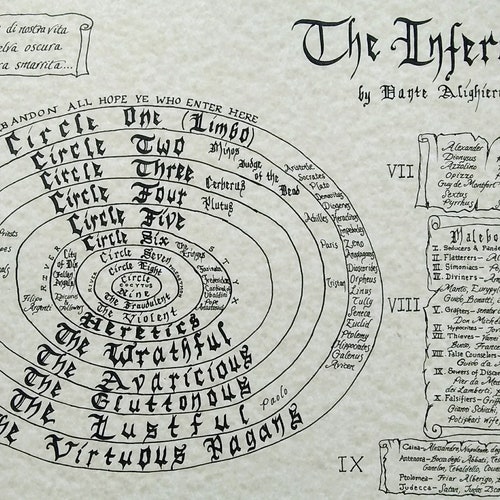 di nostra vita
selva oscura
ra smarrita...
The Infer
by Dante Alighieri
ABANDON ALL HOPE YE WHO ENTER HERE
Circle One (Limbo)
Circle Two
Minos
Judge of the Dead
Circle Three
Cerberus
Circle Four
Plutus
Circle Five
Circle Six
Circle Seven
Circle Eight
Circle
COCYTUS
Nine
The Fraudulent
The Violent
Heretics
The Wrathful
The Avaricious
The Gluttonous
The Lustful
Paolo
The Virtuous Pagans
RIVER
STYX
The Furies
City of Dis
Fallen Angels
Filippo Argenti
Farinata
Frederick
Cardinal Ubaldini
Pope Anastasius
Aristotle
Socrates
Plato
Democritus
Diogenes
Heraclitus
Empedocles
Zeno
Anaxagoras
Dioscorides
Orpheus
Linus
Tully
Seneca
Euclid
Ptolemy
Hippocrates
Galenus
Avicen
Achilles
Paris
Tristan
VII
Alexander
Dionysus
Azzolino
Opizzo
Guy de Montfort
Sextus
Pyrrhus
VIII
Malebo
I. Seducers & Pander
II. Flatterers- Al
III. Simoniacs-
IV. Diviners- Am
Manto, Eurypyl
Guido Bonatti,
V. Grafters-
Don Mich
VI. Hypocrites-
VII. Thieves- Vanni
Buoso, France
VIII. False Counselors-
Guido da M
IX. Sowers of Discor
Pier da Me
dei Lamberti,
X. Falsifiers- Grif
Gianni Schicchi,
Potiphar's Wife,
IX
Caina- Alessandro, Napoleone deg
Antenora- Bocca degli Abbati,
Ganelon, Tebaldello, Count
Ptolomea- Friar Alberigo,
Judecca- Satan, Judas,